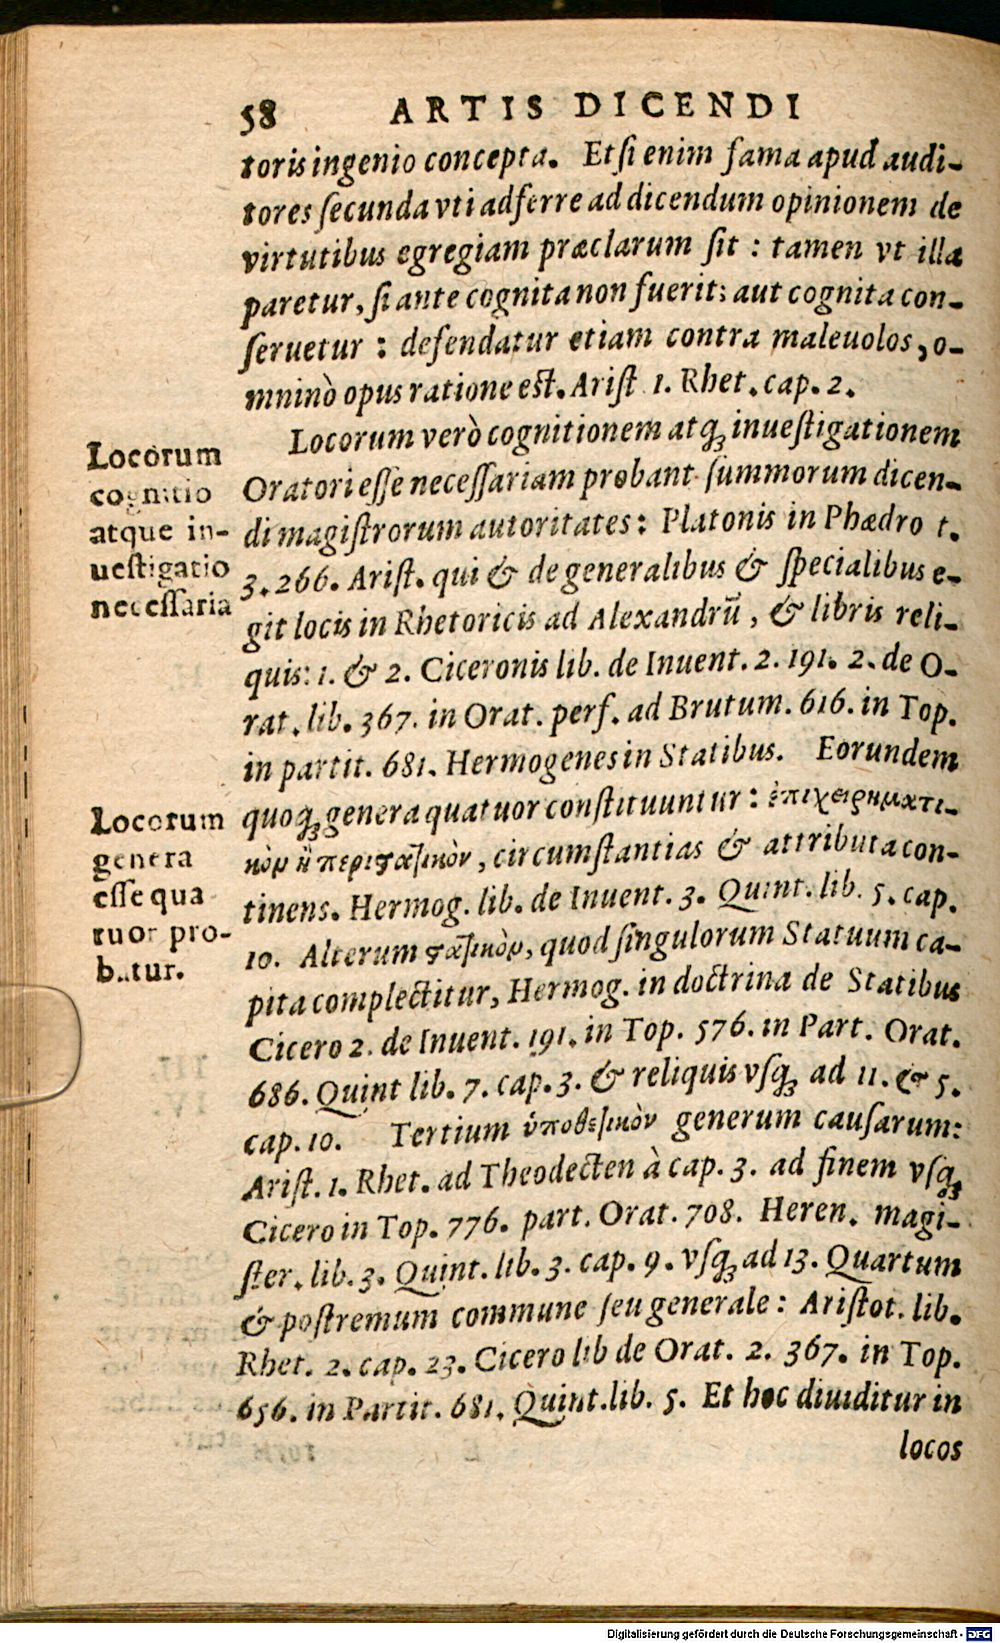 58 ARTIS DICENDI
toris ingenio concepta. Etsi enim fama apud audi-
tores secunda vti adferre ad dicendum opinionem de
virtutibus egregiam præclarum sit : tamen vt illa
paretur, si ante cognita non fuerit; aut cognita con-
seruetur : defendatur etiam contra maleuolos, o-
mninò opus ratione est. Arist 1. Rhet. cap. 2.
Locorum verò cognitionem atq; inuestigationem
Oratori esse necessariam probant summorum dicen-
di magistrorum autoritates: Platonis in Phædro t.
3. 266. Arist. qui & de generalibus & specialibus e-
git locis in Rhetoricis ad Alexandrũ, & libris reli-
quis: 1. & 2. Ciceronis lib. de Inuent. 2. 191. 2. de O-
rat. lib. 367. in Orat. perf. ad Brutum. 616. in Top.
in partit. 681. Hermogenes in Statibus. Eorundem
quoq; genera quatuor constituuntur: ἐπιχειρηματι-
κὸν ἢ περιστατικὸν, circumstantias & attributa con-
tinens. Hermog. lib. de Inuent. 3. Quint. lib. 5. cap.
10. Alterum στατικὸν, quod singulorum Statuum ca-
pita complectitur, Hermog. in doctrina de Statibus
Cicero 2. de Inuent. 191. in Top. 576. in Part. Orat.
686. Quint lib. 7. cap. 3. & reliquis vsq; ad 11. & 5.
cap. 10. Tertium ὑποθετικὸν generum causarum:
Arist. 1. Rhet. ad Theodecten à cap. 3. ad finem vsq;
Cicero in Top. 776. part. Orat. 708. Heren. magi-
ster. lib. 3. Quint. lib. 3. cap. 9. vsq; ad 13. Quartum
& postremum commune seu generale: Aristot. lib.
Rhet. 2. cap. 23. Cicero lib de Orat. 2. 367. in Top.
656. in Partit. 681. Quint. lib. 5. Et hoc diuiditur in
locos
Locorum
cognitio
atque in-
uestigatio
necessaria
Locorum
genera
esse qua
tuor pro-
batur.
Digitalisierung gefördert durch die Deutsche Forschungsgemeinschaft - DFG